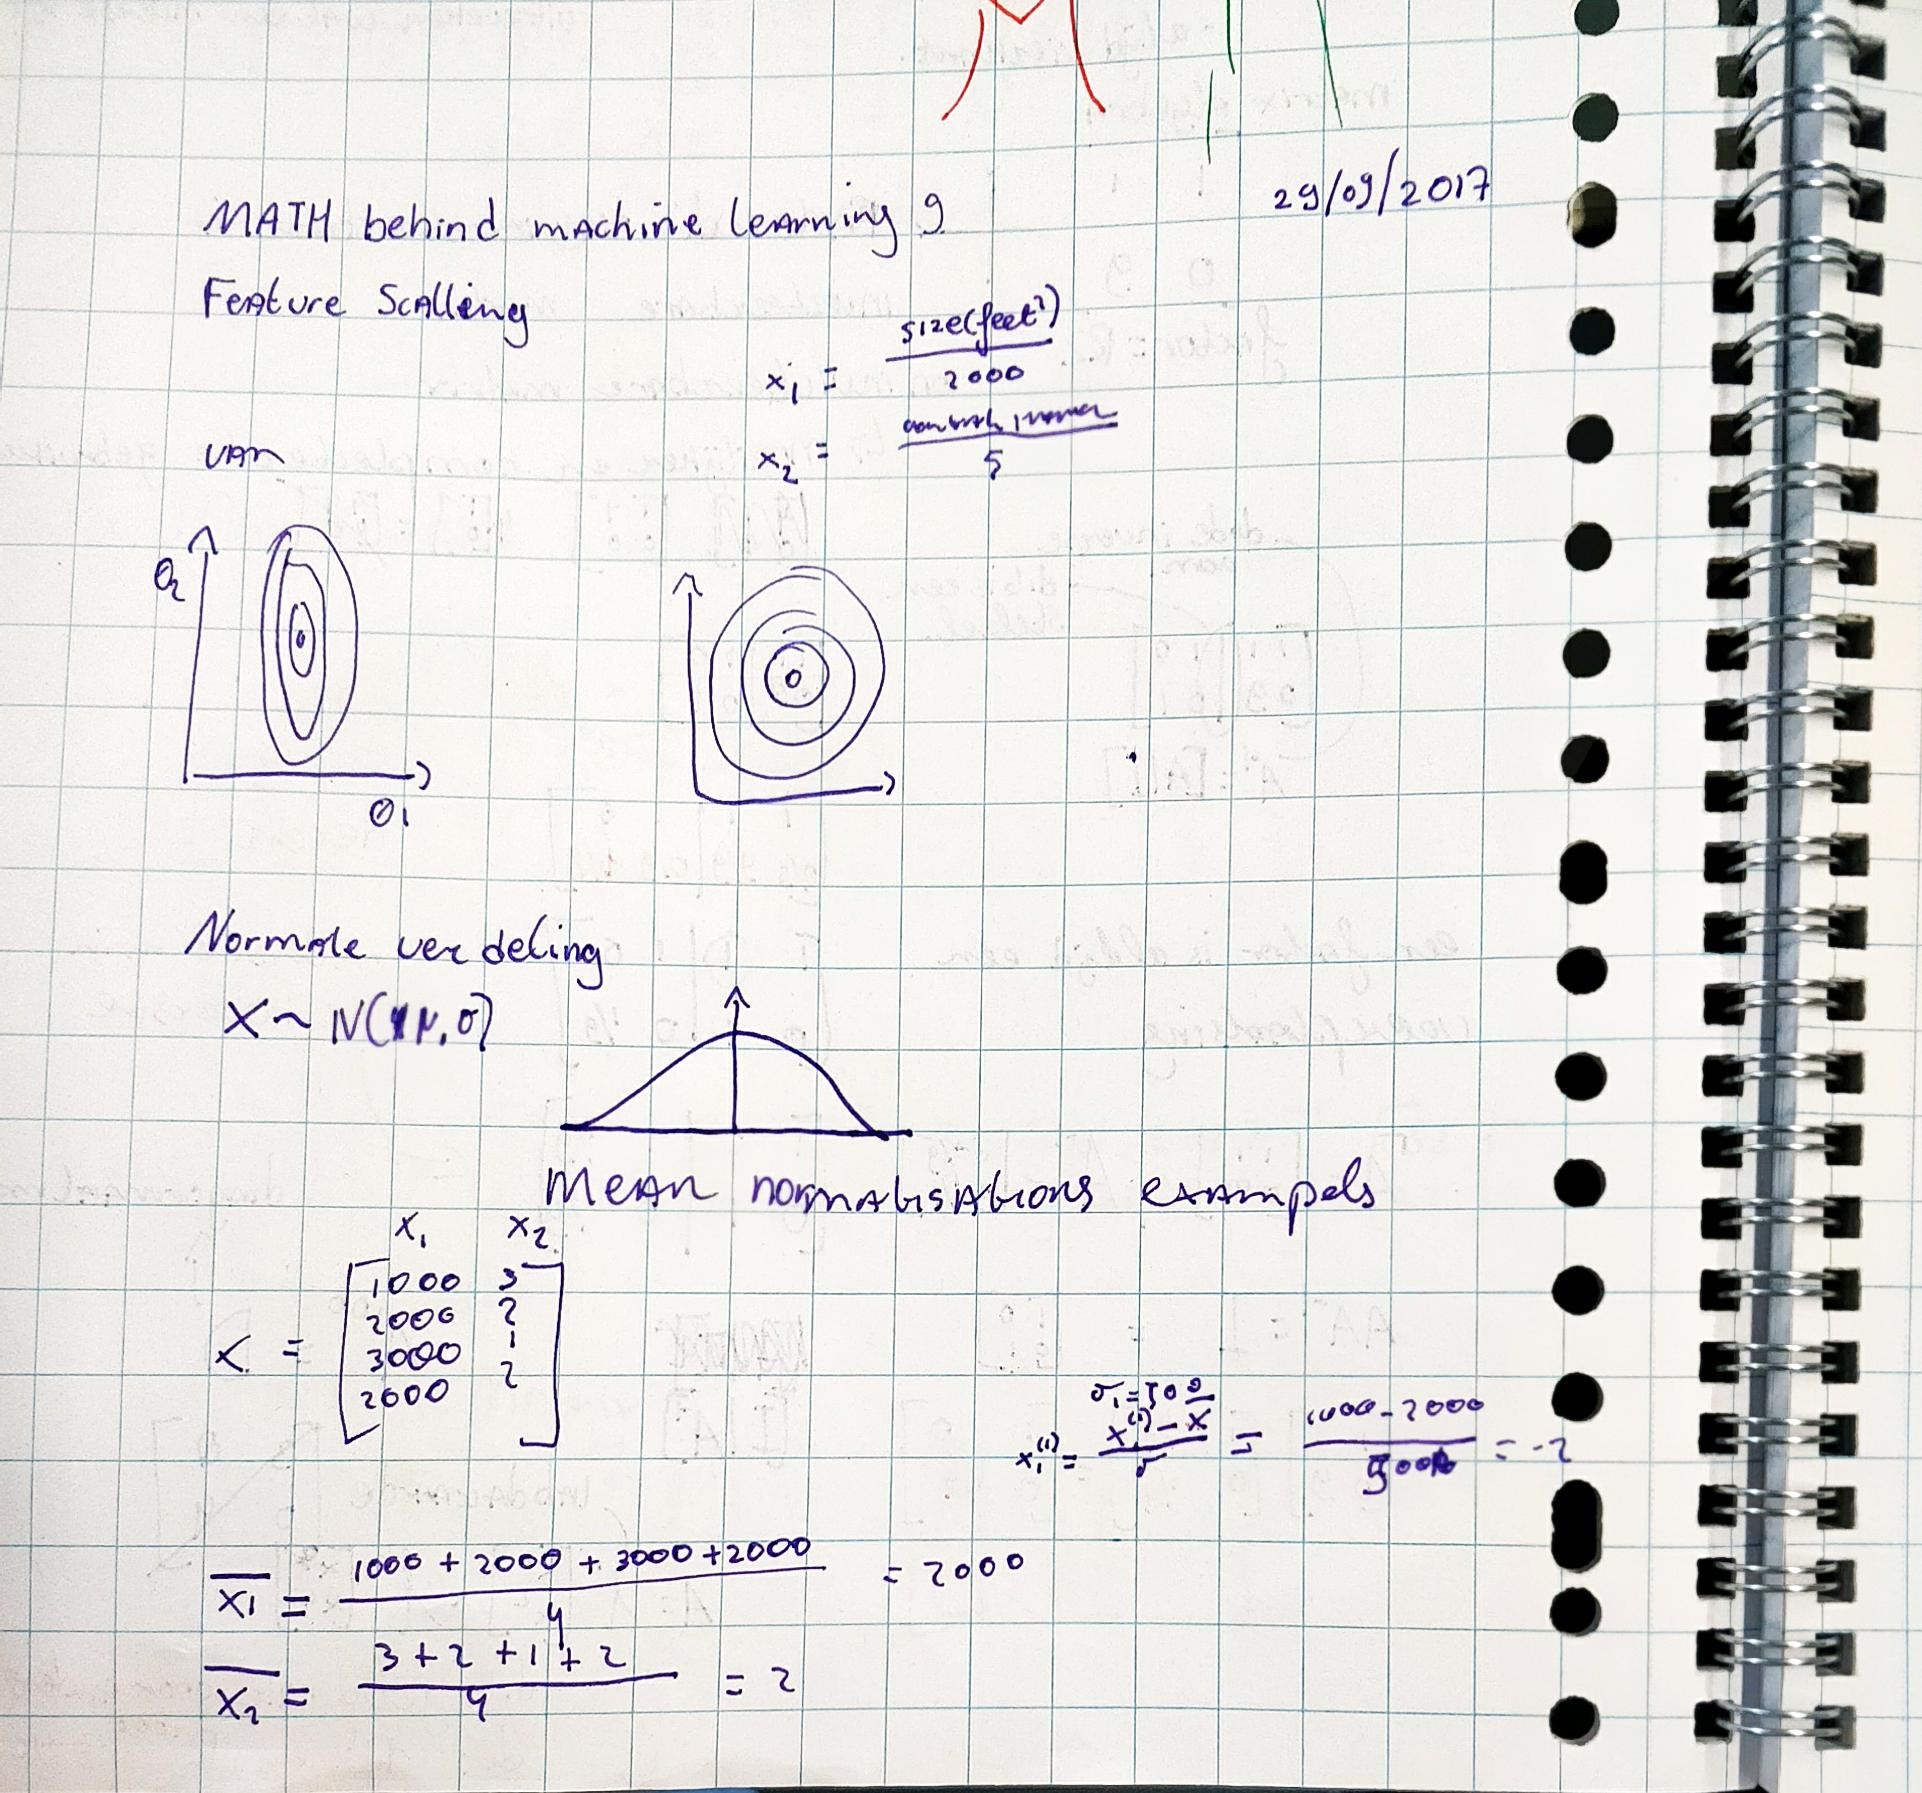 29/09/2017
MATH behind machine learning 9
Feature Scalling
x₁ = size(feet²) / 2000
x₂ = / 5
van
θ₂
θ₁
Normale verdeling
X ~ N(μ, σ)
mean normalisations exampels
x₁ x₂
X = [1000 3
2000 2
3000 1
2000 2]
σ₁ = 500
x₁⁽¹⁾ = x⁽¹⁾ - x̄ / σ = 1000 - 2000 / 500 = -2
x̄1 = 1000 + 2000 + 3000 + 2000 / 4 = 2000
x̄2 = 3 + 2 + 1 + 2 / 4 = 2